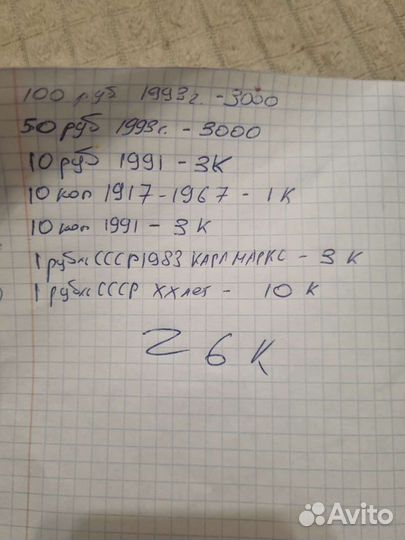 100 руб 1993г. - 3000
50 руб 1993г. - 3000
10 руб 1991 - 3К
10 коп 1917-1967 - 1К
10 коп 1991 - 3К
1 рубль СССР 1983 КАРЛ МАРКС - 3 К
1 рубль СССР ХХ лет - 10 К
26 К
Avito